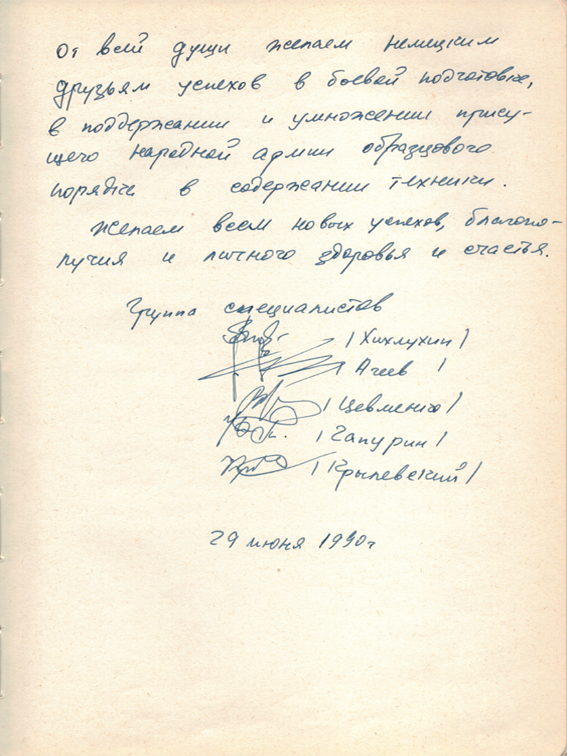 От всей души желаем немецким
друзьям успехов в боевой подготовке,
в поддержании и умножении прису-
щего народной армии образцового
порядка в содержании техники.
Желаем всем новых успехов, благопо-
лучия и личного здоровья и счастья.
Группа специалистов
/ Хихлухин /
/ Агеев /
/ Цевменко /
/ Чапурин /
/ Крылевский /
29 июня 1990г